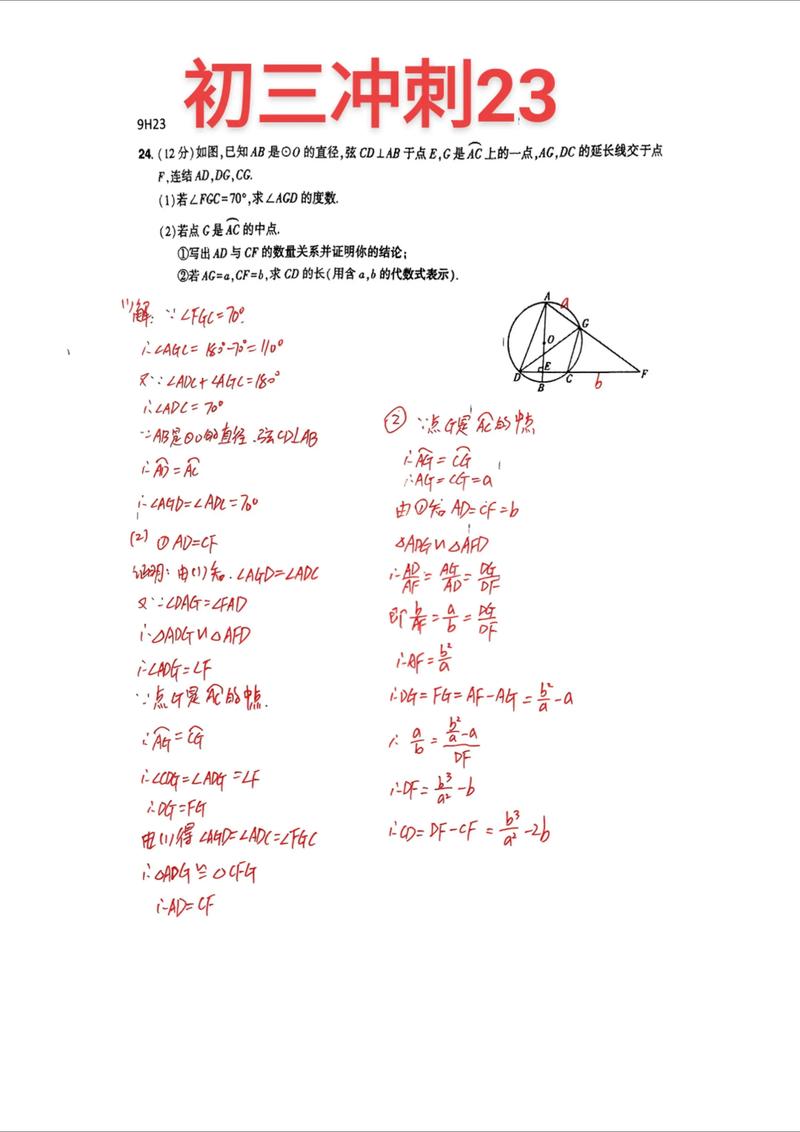 初三冲刺23
9H23
24.(12分)如图,已知AB是⊙O的直径,弦CD⊥AB于点E,G是AC上的一点,AG,DC的延长线交于点
F,连结AD,DG,CG.
(1)若∠FGC=70°,求∠AGD的度数.
(2)若点G是AC的中点.
①写出AD与CF的数量关系并证明你的结论;
②若AG=a,CF=b,求CD的长(用含a,b的代数式表示).
A
a
G
O
D
E
C
F
B
b
(1)解: ∵∠FGC=70°
∴∠AGC=180°-70°=110°
又∵∠ADC+∠AGC=180°
∴∠ADC=70°
∵AB是⊙O的直径.弦CD⊥AB
∴AD=AC
∴∠AGD=∠ADC=70°
(2) ①AD=CF
证明:由(1)知.∠AGD=∠ADC
又∵∠DAG=∠FAD
∴△ADG∽△AFD
∴∠ADG=∠F
∵点G是AC的中点.
∴AG=CG
∴∠CDG=∠ADG=∠F
∴DG=FG
由(1)得∠AGD=∠ADC=∠FGC
∴△ADG≌△CFG
∴AD=CF
② ∵点G是AC的中点
∴AG=CG
∴AG=CG=a
由①知AD=CF=b
△ADG∽△AFD
∴AD/AF=AG/AD=DG/DF
即b/AF=a/b=DG/DF
∴AF=b²/a
∴DG=FG=AF-AG=b²/a-a
∴a/b=(b²/a-a)/DF
∴DF=b³/a²-b
∴CD=DF-CF=b³/a²-2b